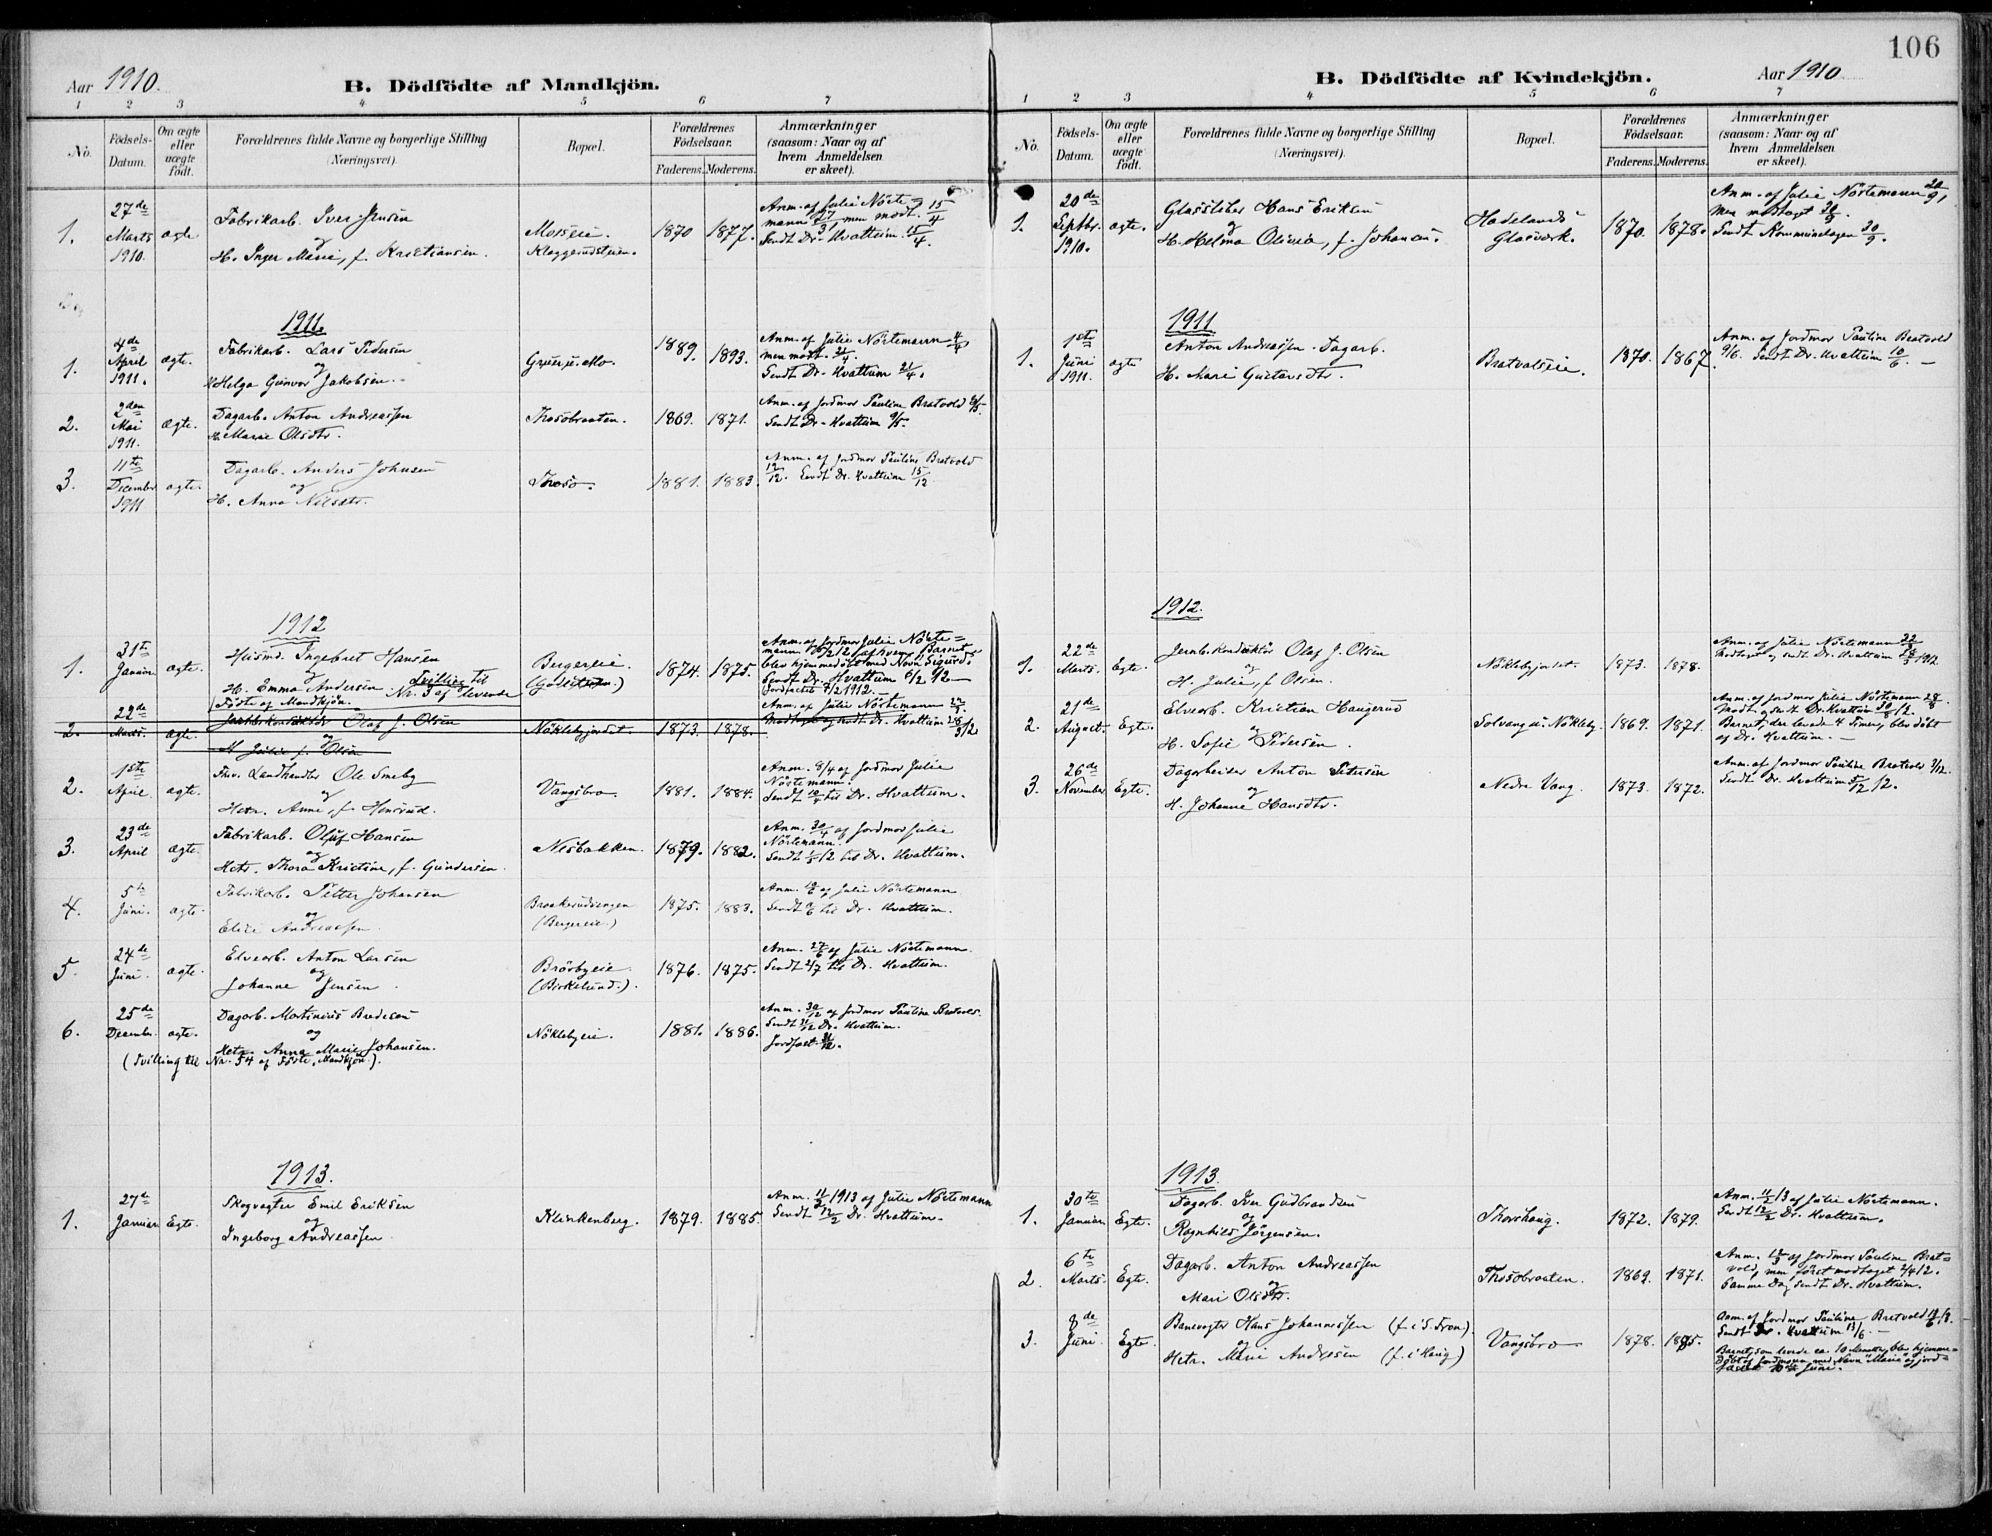 106
Aar 1910.
B. Dödfödte af Mandkjön.
1 2 3 4 5 6 7
No.
Födsels-Datum.
Om ægte eller uægte födt.
Forældrenes fulde Navne og borgerlige Stilling
(Næringsvei).
Bopæl.
Forældrenes Födselsaar.
Faderens. Moderens.
Anmærkninger
(saasom: Naar og af
hvem Anmeldelsen
er skeet).
1. 27de Marts 1910. ægte
Fabrikarb. Iver Jensen
og
H. Inger Marie, f. Kristiansen.
Moseeie.
Klæggerudsteien.
1870 1877.
Anm. af Julie Nörte=
mann 27/3, men modt. 15/4
Sendt Dr. Hvattum. 15/4.
1911.
1. 4de April 1911. ægte.
Fabrikarb. Lars Pedersen
og
H. Helga Gunvor Jakobsen.
1889. 1893.
Anm. af Julie Nörtemann
men modt. 21/4.
Sendt Dr. Hvattum 21/4.
2. 2den Mai 1911. Ægte.
Dagarb. Anton Andreassen
H. Marie Olsdtr.
Thosobraaten.
1869. 1871.
Anm. af Jordmor Pauline Bratvold 9/5.
Sendt Dr. Hvattum 9/5.
3. 11te December 1911 ægte.
Dagarb. Anders Johnsen
og
H. Anna Nilsdtr.
Thoso.
1881. 1883.
Anm. af Jordmor Pauline Bratvold
12/12. Sendt Dr. Hvattum 15/12
1912
1. 31te Januar ægte.
Husmd. Ingebret Hansen
H. Emma Andersen Tvilling til
Nr. 3 af levende
Födte af Mandkjön.
Bergereie.
1874. 1875.
Anm. af Jordmor Julie Nörte=
mann 6/2 12, af hvem Barnet
blev hjemmedöbt med Navn Sigurd.
Sendt Dr. Hvattum 6/2 12
Jordfæstet 8/2 1912.
2. 22de Marts. ægte.
Jernbkonduktör Olaf J. Olsen
og
H. Julie f. Olsen
Nöklebyjordet.
1873. 1878.
Anm. af Julie Nörtemann 22/3.
Modtaget og sendt Dr. Hvattum 28/3 12
2. 1ste April ægte.
Fhv. Landhandler Ole Smeby
og
Hstr. Anne, f. Hensrud.
Vangsbro.
1881. 1884.
Anm. 8/4 af Jordmor Julie
Nörtemann.
Sendt 10/4 til Dr. Hvattum.
3. 23de April ægte.
Fabrikarb. Oluf Hansen
og
Hstr. Thora Kristine, f. Gundersen.
Nesbakken.
1879. 1882.
Anm. 30/4 af Jordmor Julie
Nörtemann.
Sendt 1/5 12 til Dr. Hvattum.
4. 5te Juni. ægte.
Fabrikarb. Petter Johansen
og
Elise Andreassen.
Braakerudsengen
(Bergereie.)
1875. 1883.
Anm. af Julie Nörtemann
Sendt til Dr. Hvattum.
5. 24de Juni. ægte.
Elvearb. Anton Larsen
og
Johanne Jensen.
Brörbyeie.
(Birkelund.).
1876. 1875.
Anm. 27/6 af Julie Nörtemann.
Sendt 2/7 til Dr. Hvattum.
6. 25de Decembr. ægte.
Dagarb. Martinius Bredesen
og
Hstr. Anna Marie Johansen.
(Tvilling til Nr. 54 af Födte, Mandkjön).
Nöklebyeie.
1881. 1886.
Anm. 30/12 af Jordmor Pauline Bratvold.
Sendt 31/12 Dr. Hvattum.
Jordfæst. 31/12.
1913.
1. 27de Januar Egte.
Skogvogter Emil Eriksen
og
Ingeborg Andreassen.
Klinkenberg.
1879. 1885.
Anm. 11/2 1913 af Julie Nörtemann
Sendt 12/2 Dr. Hvattum.
B. Dödfödte af Kvindekjön.
Aar 1910
1 2 3 4 5 6 7
No.
Födsels-Datum.
Om ægte eller uægte födt.
Forældrenes fulde Navne og borgerlige Stilling
(Næringsvei).
Bopæl.
Forældrenes Födselsaar.
Faderens. Moderens.
Anmærkninger
(saasom: Naar og af
hvem Anmeldelsen
er skeet).
1. 20de Septbr. 1910. ægte.
Glassliber Hans Eriksen
og
H. Helma Olivia, f. Johansen.
Hadelands
Glasværk.
1870. 1878.
Anm. af Julie Nörtemann 20/9,
men modtaget 30/9.
Sendt Kommunelægen 30/9.
1911
1. 1ste Juni 1911. ægte
Anton Andreassen. Dagarb.
H. Mari Gustavsdtr.
Bratvoldseie.
1870. 1867.
Anm. af Jordmor Pauline Bratvold
9/6. Sendt Dr. Hvattum 10/6
1912.
1. 22de Marts. Egte.
Jernb.konduktör Olaf J. Olsen
og
H. Julie, f. Olsen.
Nöklebyjordet.
1873. 1878.
Anm. af Julie Nörtemann 22/3
Modtaget og sendt Dr. Hvattum 28/3 1912
2. 21de August Egte.
Elvearb. Kristian Haugerud
og
H. Sofie Pedersen.
Solvang u. Nökleby.
1869. 1871.
Anm. af Jordmor Julie Nörtemann 28/8.
Modt. og sendt Dr. Hvattum 30/8 12.
Barnet, der levede 4 Timer, blev döbt
af Dr. Hvattum.
3. 26de November Egte.
Dagarbeider Anton Petersen
og
H. Johanne Hansdtr.
Nedre Vang.
1873. 1872.
Anm. af Jordmor Pauline Bratvold 3/12.
Sendt Dr. Hvattum 5/12 12.
1913.
1. 30te Januar Egte.
Dagarb. Iver Gudbrandsen
og
Ragnhild Jörgensen.
Thorshaug.
1872. 1879.
Anm. 11/2 13 af Julie Nörtemann.
Sendt 12/2 Dr. Hvattum.
2. 6te Marts. Egte.
Dagarb. Anton Andreassen
og
Mari Olsdtr.
Thosobraaten.
1869. 1871.
Anm. af Jordmor Pauline Brat=
vold, men först modtaget
Samme Dag sendt Dr. Hvattum.
3. 8de Juni Egte.
Banevogter Hans Johannessen (f. i S. Fron).
og
Hstr. Marie Andresen (f. i Haug)
Vangsbro
1878. 1885.
Anm. af Jordmor Pauline Bratvold
Sendt Dr. Hvattum 13/6.
Barnet, som levede ca. 10 Minutter, blev hjemme=
döbt af Jordmoren med Navn "Marie" og jord=
fæstet Juni.